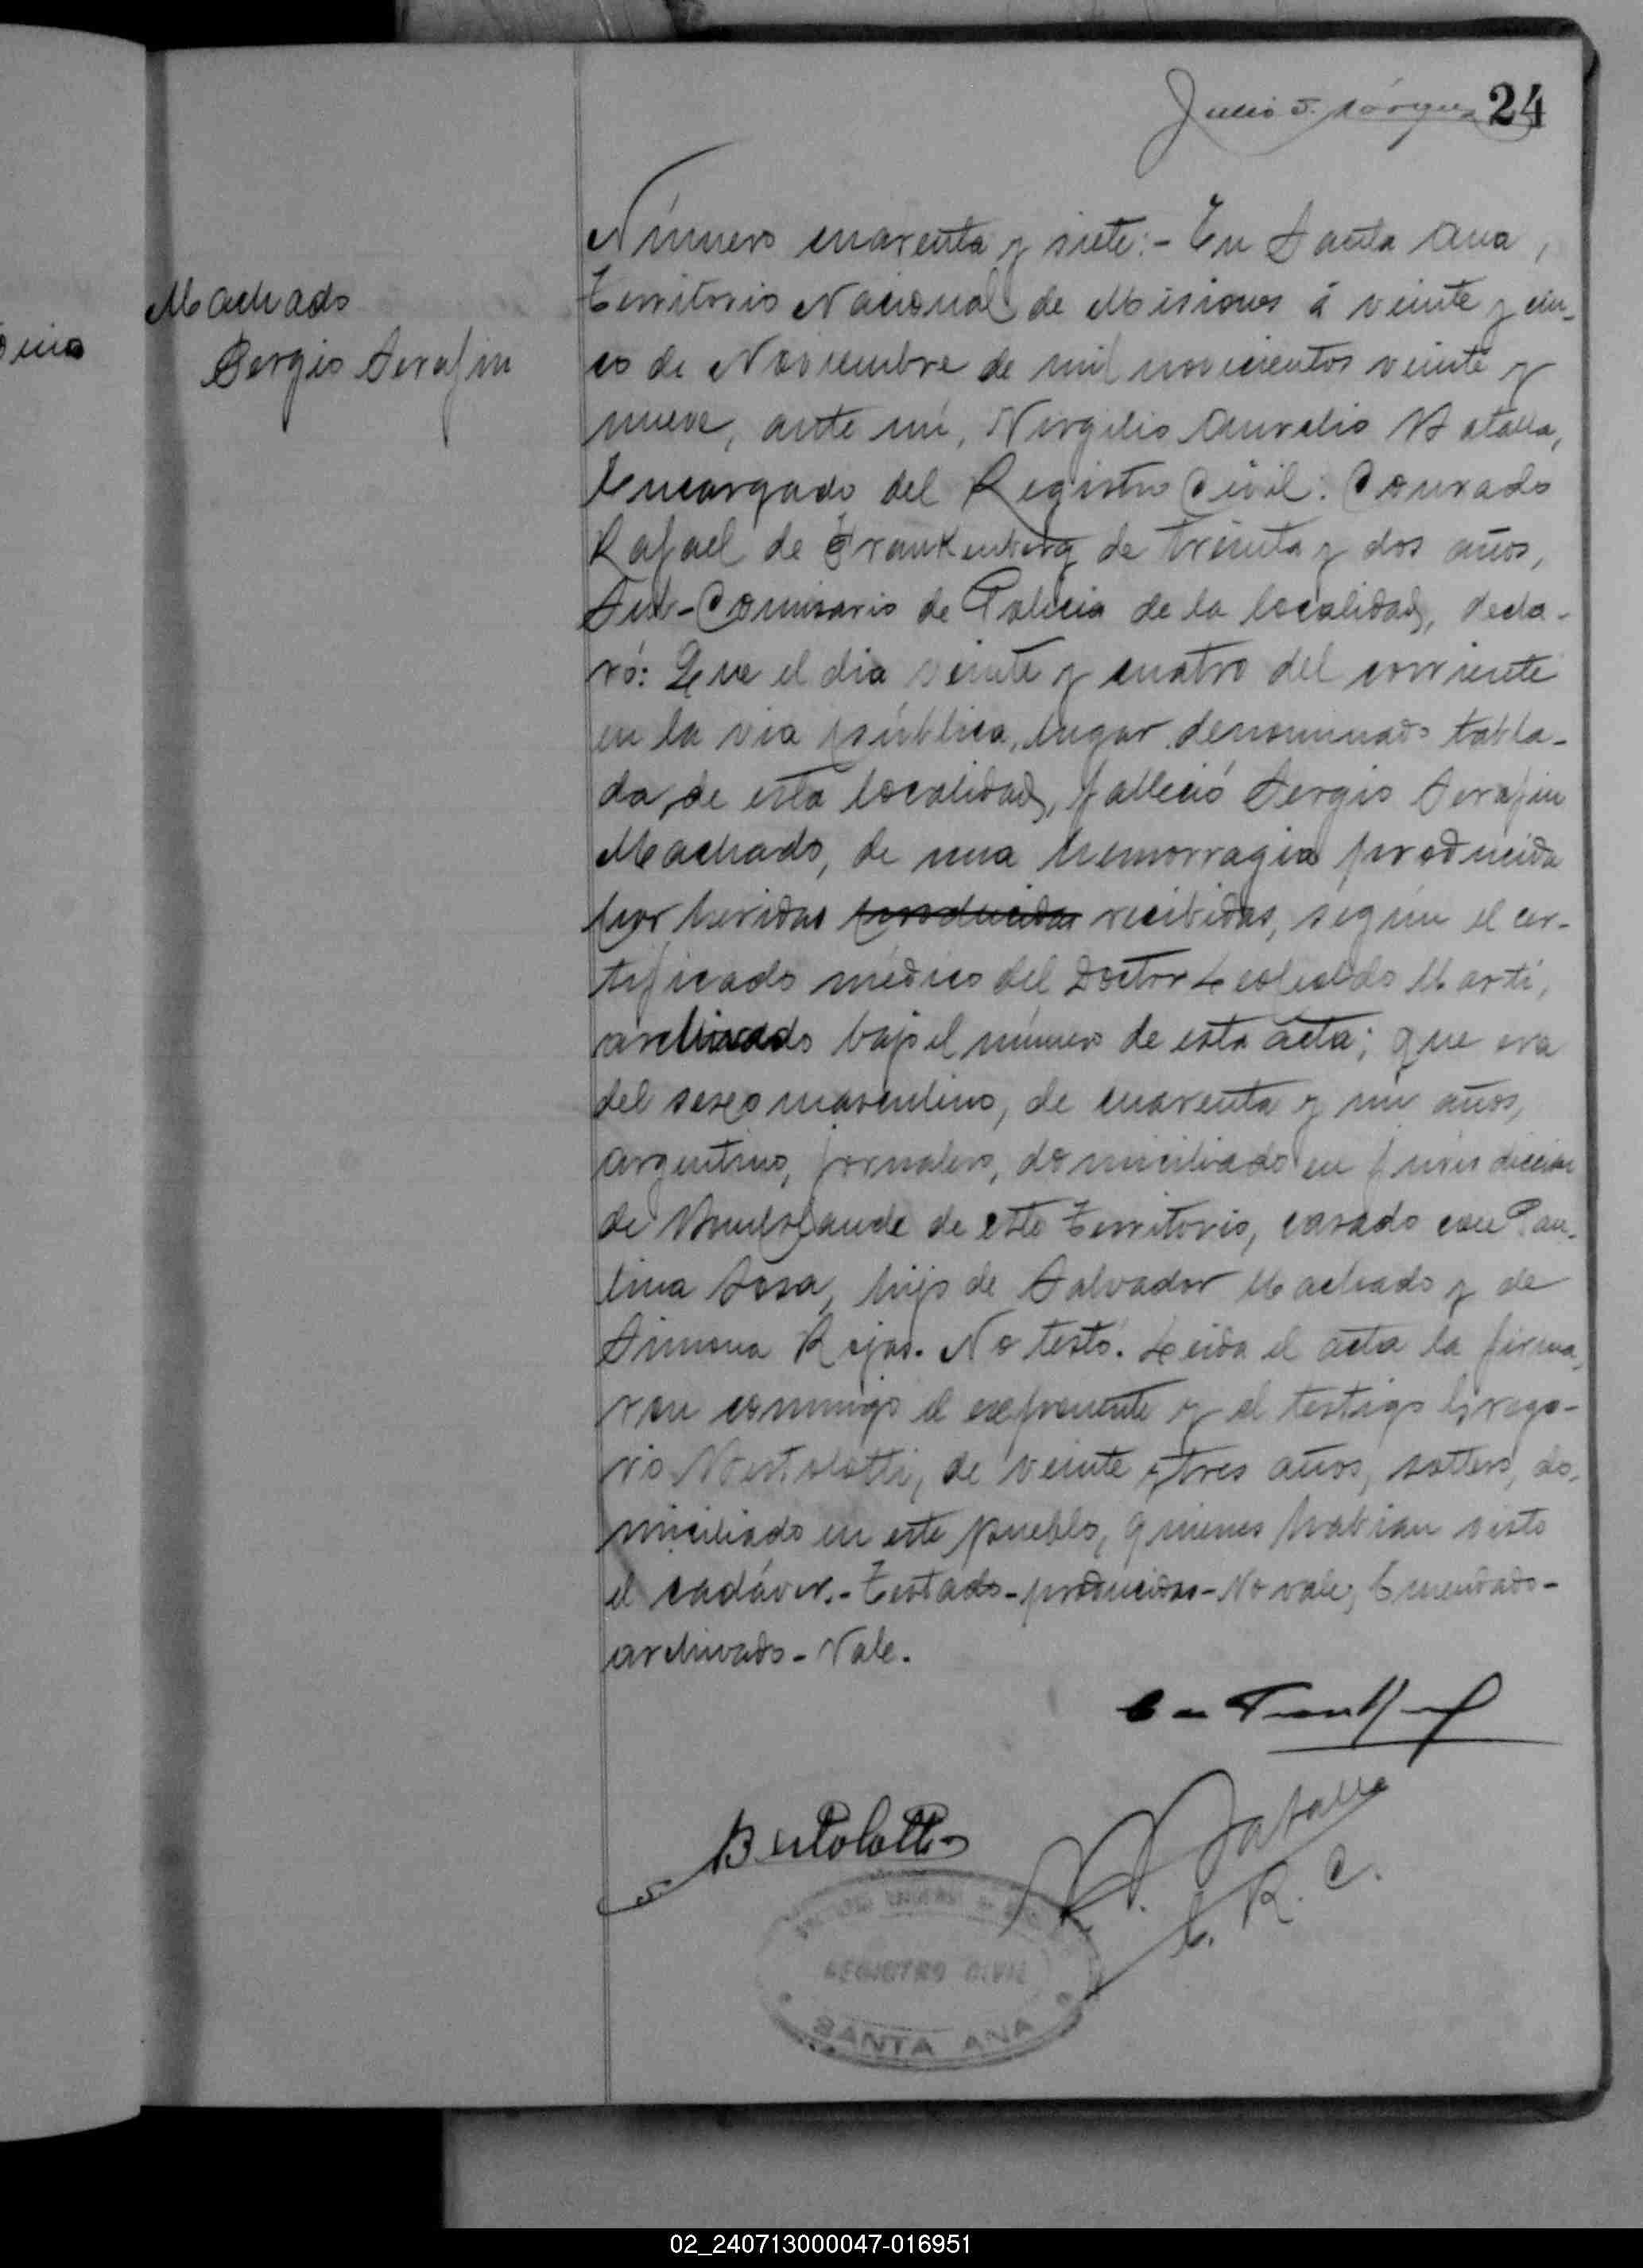 24
Machado
Sergio Serafin
Número cuarenta y siete:- En Santa Ana,
Territorio Nacional de Misiones á veinte y cin-
co de Noviembre de mil novecientos veinte y
nueve, ante mí, Virgilio Aurelio Batalla,
Encargado del Registro Civil: Conrado
Rafael de Frankenberg de treinta y dos años,
Sub-Comisario de Policia de la localidad, decla-
ró: Que el dia veinte y cuatro del corriente
en la via pública, lugar denominado tabla-
da de esta localidad, falleció Sergio Serafin
Machado, de una hemorragia producida
por heridas producidas recibidas, según el cer-
tificado médico del Doctor Leopoldo Marti,
archivado bajo el número de esta acta; que era
del sexo masculino, de cuarenta y un años,
argentino, jornalero, domiciliado en jurisdiccion
de de este Territorio, casado con Pau-
lina Sosa, hijo de Salvador Machado y de
Simona Rojas. No testó. Leida el acta la firma-
ron conmigo el exponente y el testigo Grego-
rio Bertolotti, de veinte y tres años, soltero, do-
miciliado en este pueblo, quienes habian visto
el cadáver.- Testado- producidas- No vale, Enmendado-
archivado- Vale.
Bertolotti
V. A. Batalla
E. R. C.
REGISTRO CIVIL
SANTA ANA
02_240713000047-016951